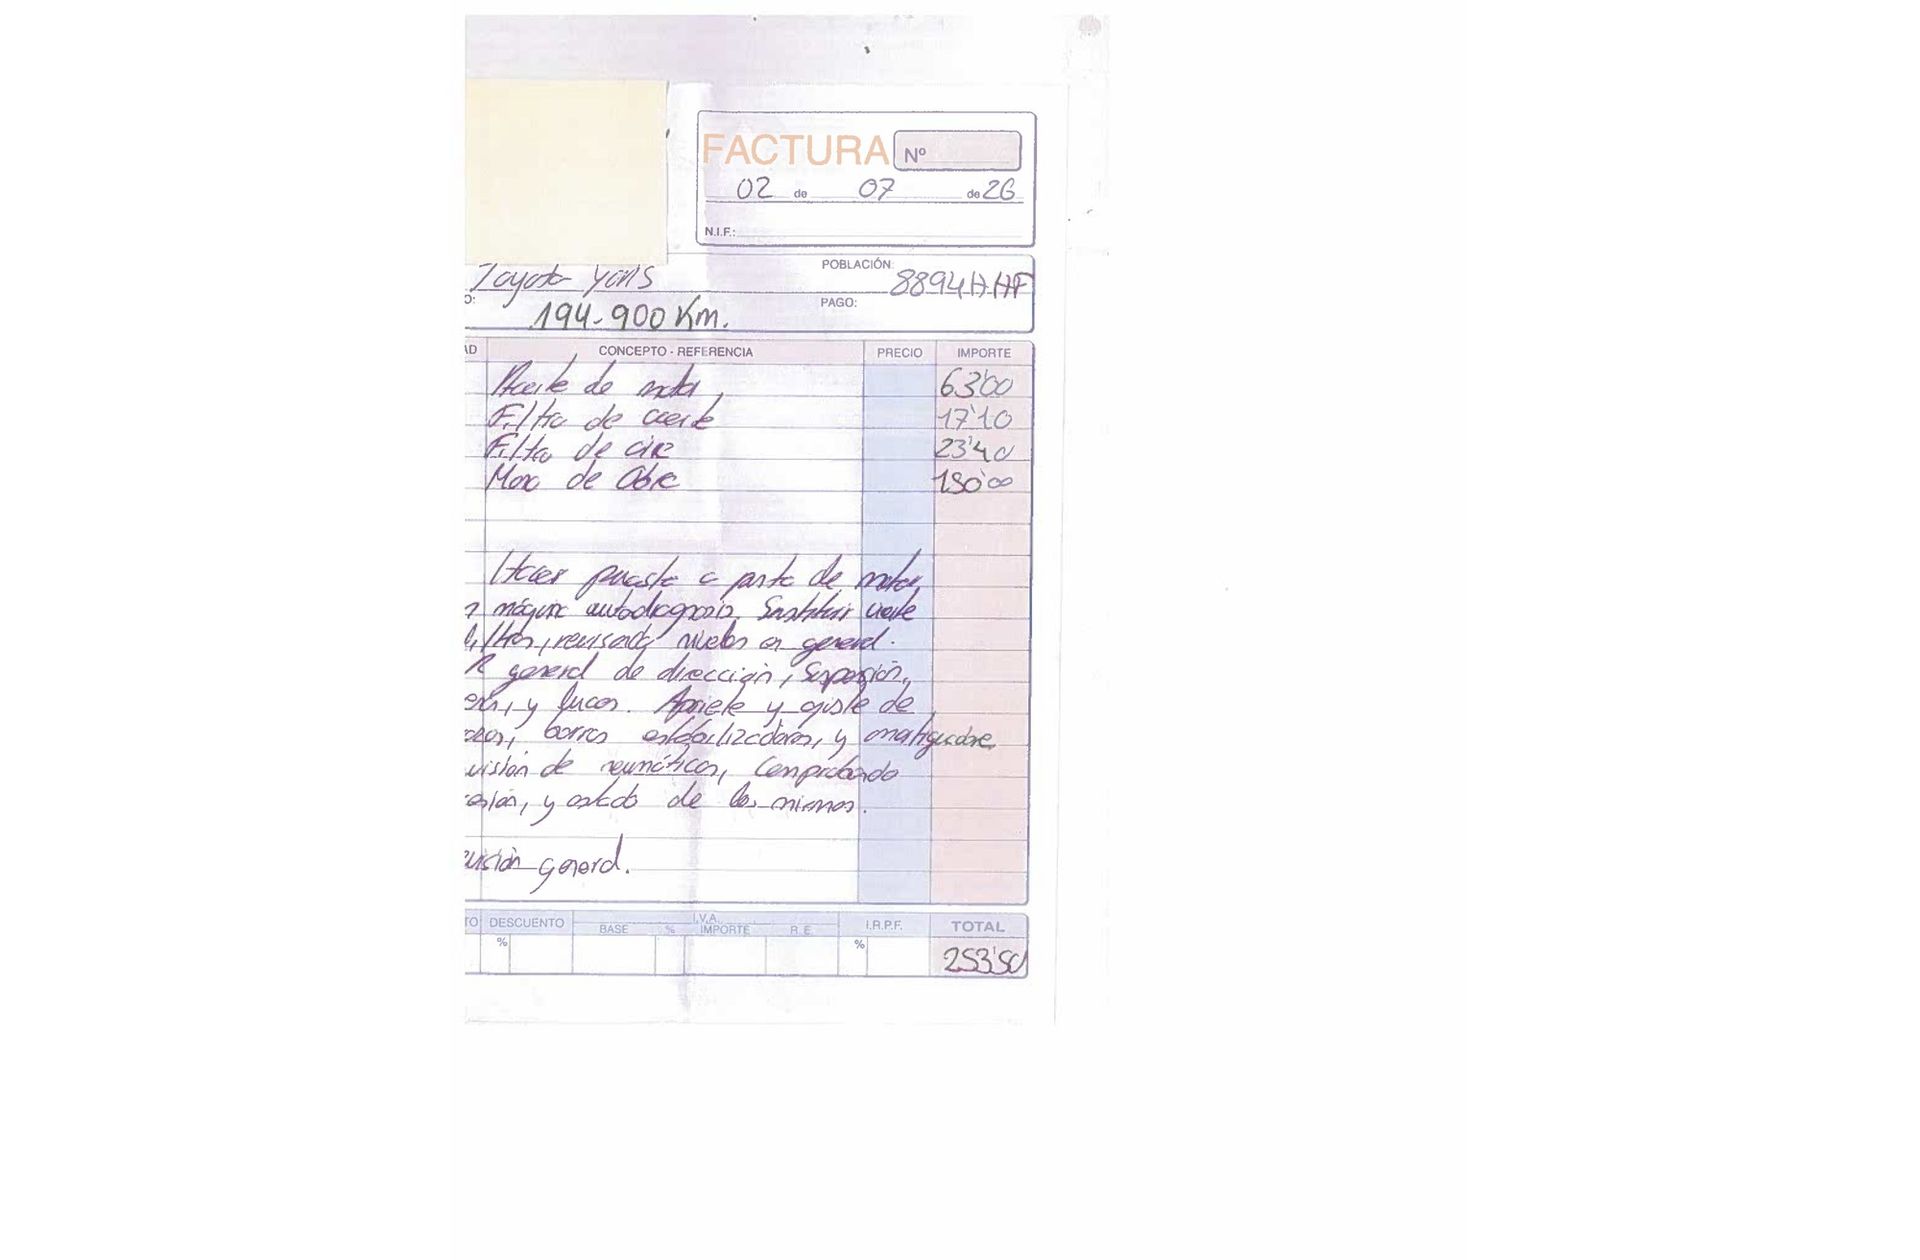 FACTURA Nº
02 de 07 de 26
N.I.F.:
Toyota Yaris
POBLACIÓN:
8894HHF
O:
PAGO:
194.900 Km.
AD CONCEPTO - REFERENCIA PRECIO IMPORTE
Aceite de motor 63'00
Filtro de aceite 17'10
Filtro de aire 23'40
Mano de Obra 150'00
Hacer puesta a punto de motor
n máquina autodiagnosis. Sustituir aceite
filtros, revisando niveles en general.
R general de dirección, Suspensión,
y luces. Apriete y ajuste de
barras estabilizadoras, y amortiguadores
visión de neumáticos, Comprobando
resión, y estado de los mismos.
visión general.
TO DESCUENTO I.V.A. I.R.P.F. TOTAL
BASE % IMPORTE R.E.
% % 253'50